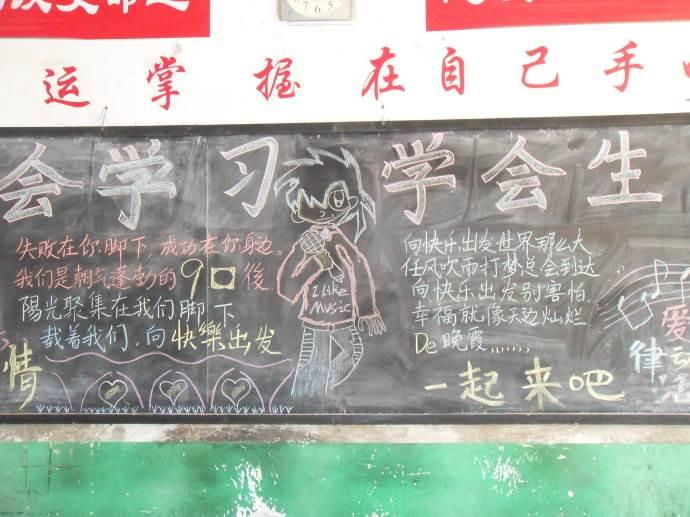 运掌握在自己手中
会学习
学会生
失败在你脚下，成功在你身边。
我们是朝气蓬勃的90後
陽光聚集在我们脚下
载着我们，向快樂出发
情
I Like
Music
向快乐出发世界那么大
任风吹雨打梦总会到达
向快乐出发别害怕.
幸福就像天边灿烂
De晚霞......
一起来吧
爱
律动
活